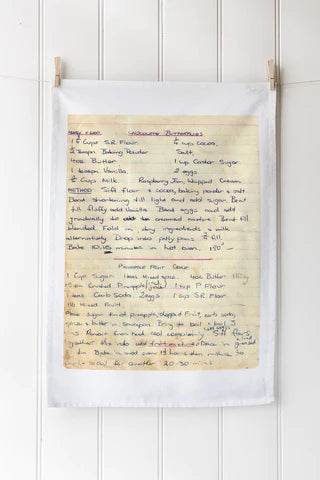 CHOCOLATE BUTTERFLIES
1 Cups S.R Flour ¼ cup Cocoa.
Teaspn Baking Powder Salt.
4oz Butter. 1 cup Castor Sugar
1 teaspn Vanilla. 2 eggs
Cups Milk Raspberry Jam, Whipped Cream
METHOD Sift flour & cocoa, baking powder & salt
Beat shortening till light and add sugar. Beat
till fluffy add Vanilla. Beat eggs and add
gradually to creamed mixture. Beat till
blended. Fold in dry ingredients & milk
alternately. Drop into patty pans fill.
Bake 10-15 minutes in hot oven. 190°
PINEAPPLE FRUIT CAKE
1 Cup Sugar 1 teas Mixed spice. 4oz Butter 110g
Crushed Pineapple 1 cup P Flour
1 teas Carb Soda. 2 eggs 1 cup SR Flour
1lb Mixed Fruit
Place sugar tin of pineapple, chopped Fruit, carb soda,
spice & butter in saucepan. Bring to boil & boil 3
mins Remove from heat cool completely.
together Mix into fruit mixture. Place in greased
tin Bake in mod oven
for another 20-30 mins